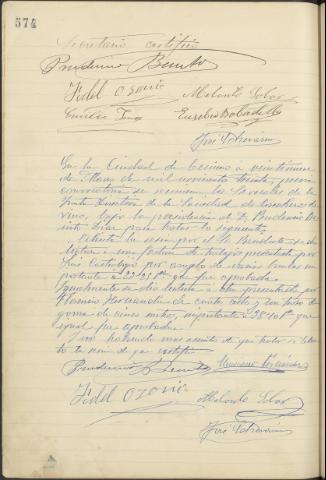 574
Secretario certifico
Prudencio Benito
Fidel Osorio Melonto Tobar
Emilio Eusebio Bobadilla
José Echevarria
En la Ciudad de a veintinueve
de Mayo de mil novecientos treinta y previa
convocatoria se reunieron los Sres vocales de la
Junta Directiva de la Sociedad de Cosecheros de
vino, bajo la presidencia de D. Prudencio Be-
nito Diaz para tratar lo siguiente.
Abierta la sesion por el Sr Presidente se dio
lectura a una factura de trabajos presentada por
Luis por arreglo de varias im-
portante a 22 que fue aprobada.
Igualmente se dio lectura a otra presentada por
Hernandez de cuatro y un tubo de
goma de cinco metros, importante a 38'10 Ptas que
igual fue aprobada.
Y no habiendo mas asuntos de que tratar se levan-
to la sesion de que certifico
Prudencio Benito Hernández
Fidel Osorio Melonto Tobar
José Echevarria